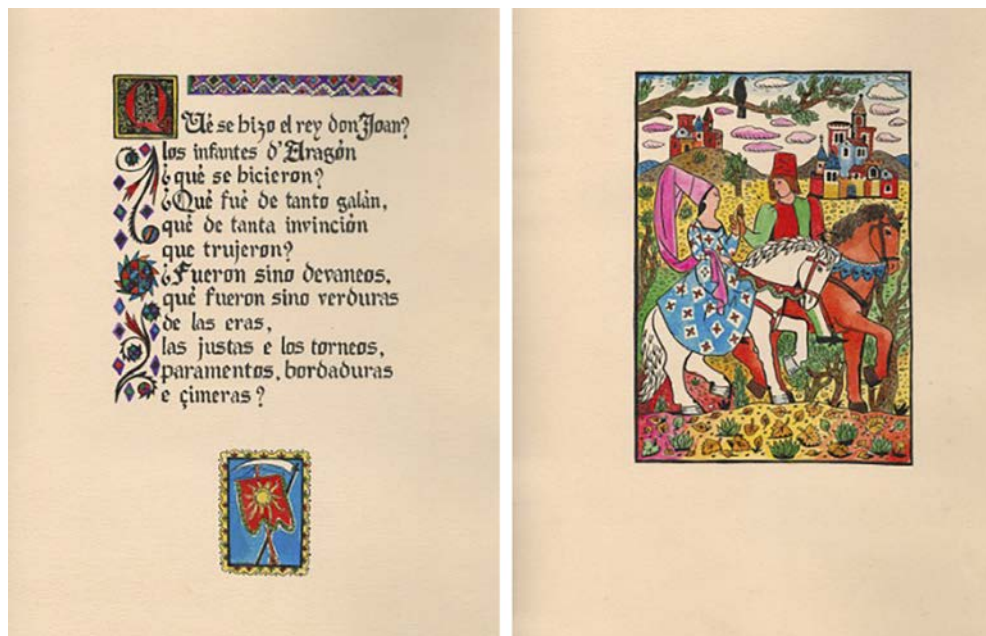 Qué se hizo el rey don Joan?
los infantes d'Aragón
¿qué se hicieron?
¿Qué fué de tanto galán,
qué de tanta invinción
que trujeron?
¿Fueron sino devaneos,
qué fueron sino verduras
de las eras,
las justas e los torneos,
paramentos, bordaduras
e çimeras?